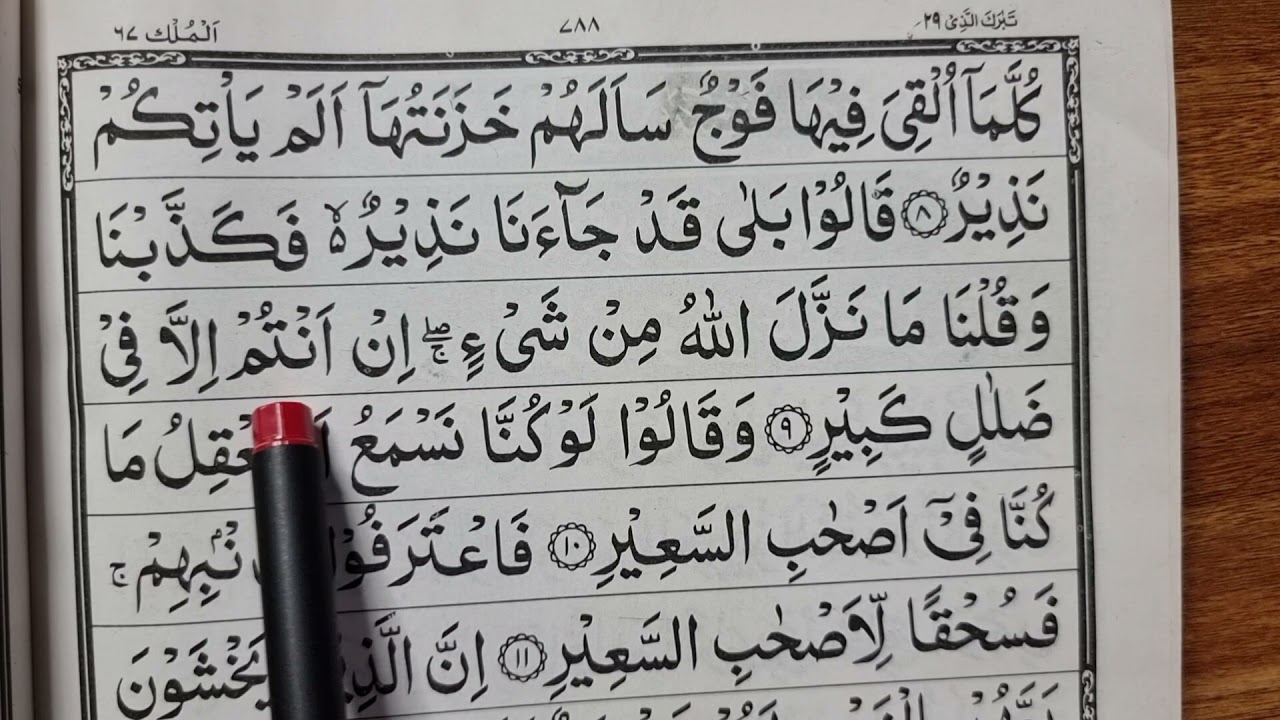 تَبٰرَكَ الَّذِیْ ۲۹ ۷۸۸ اَلْمُلْك ۶۷
كُلَّمَاۤ اُلْقِیَ فِیْهَا فَوْجٌ سَاَلَهُمْ خَزَنَتُهَاۤ اَلَمْ یَاْتِكُمْ
نَذِیْرٌ ۸ قَالُوْا بَلٰی قَدْ جَآءَنَا نَذِیْرٌ ۙ۬ فَكَذَّبْنَا
وَ قُلْنَا مَا نَزَّلَ اللّٰهُ مِنْ شَیْءٍ ۖۚ اِنْ اَنْتُمْ اِلَّا فِیْ
ضَلٰلٍ كَبِیْرٍ ۹ وَ قَالُوْا لَوْ كُنَّا نَسْمَعُ مَا
كُنَّا فِیْۤ اَصْحٰبِ السَّعِیْرِ ۱۰ فَاعْتَرَفُوْا ۚ
فَسُحْقًا لِّاَصْحٰبِ السَّعِیْرِ ۱۱ اِنَّ یَخْشَوْنَ